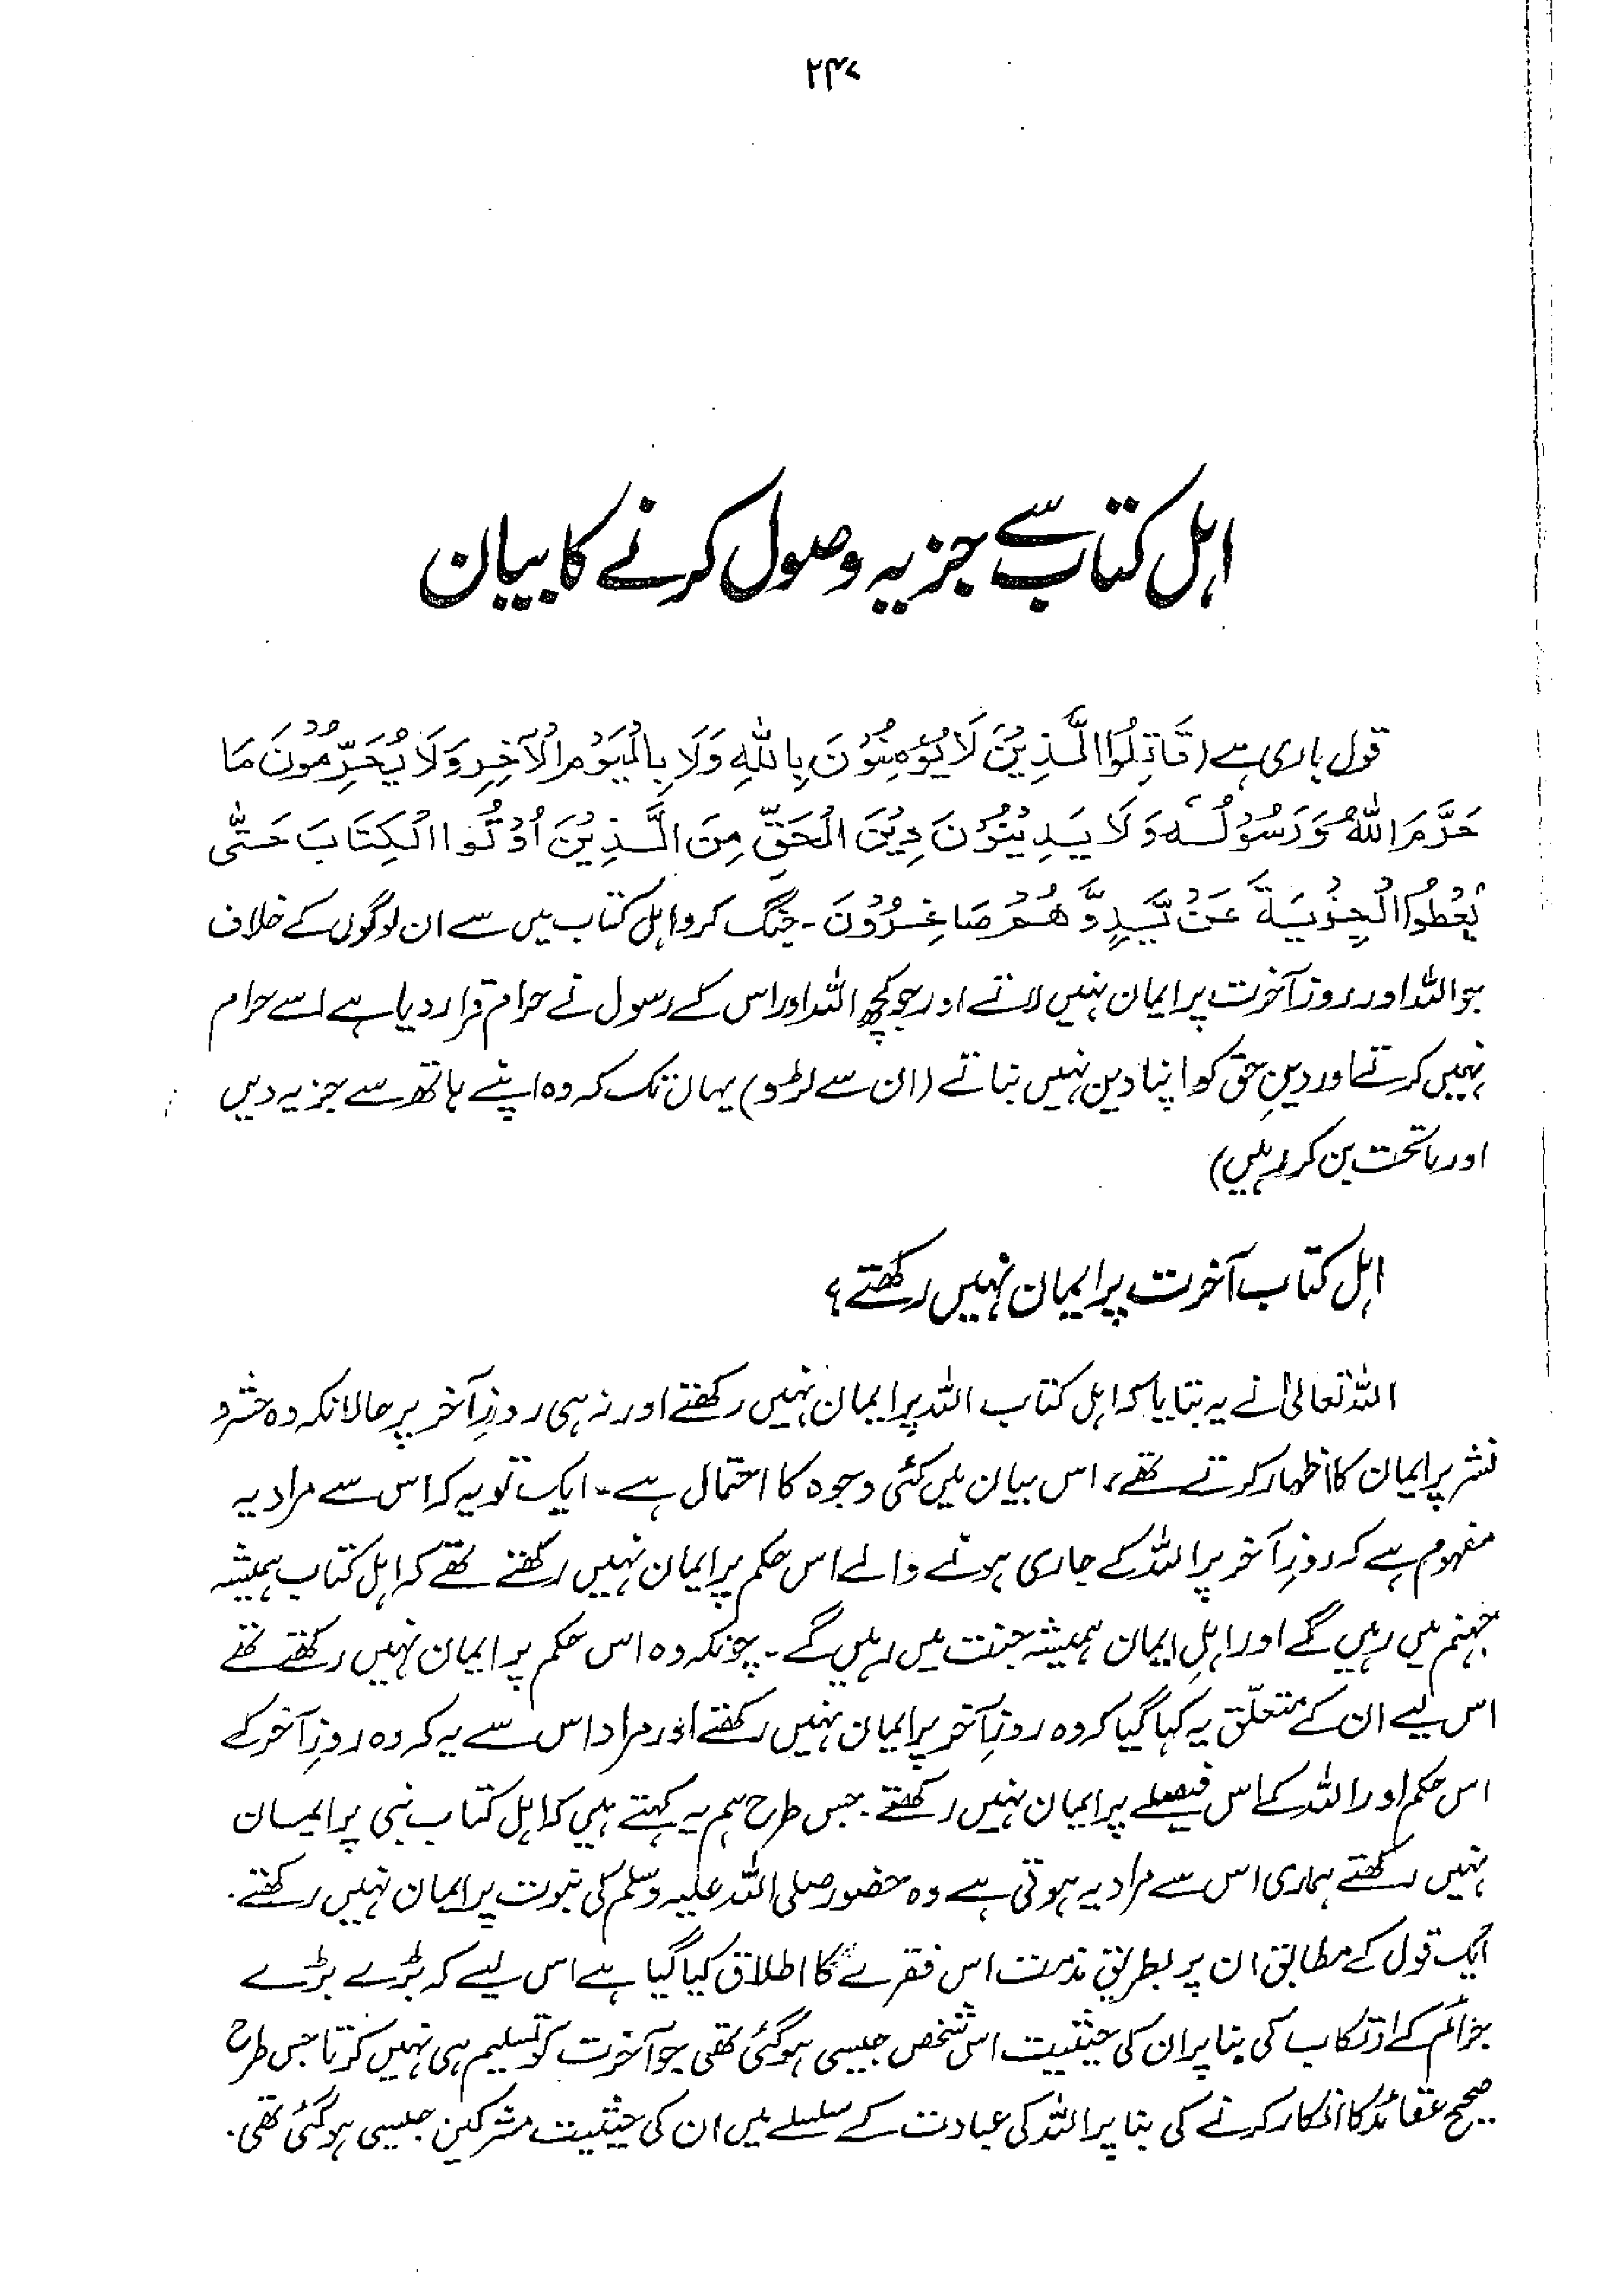 ۲۴۷
اہل کتاب سے جزیہ وصول کرنے کا بیان
قول باری ہے (قَاتِلُوا الَّذِيْنَ لَا يُؤْمِنُوْنَ بِاللّٰهِ وَلَا بِالْيَوْمِ الْآخِرِ وَلَا يُحَرِّمُوْنَ مَا
حَرَّمَ اللّٰهُ وَرَسُوْلُهٗ وَلَا يَدِيْنُوْنَ دِيْنَ الْحَقِّ مِنَ الَّذِيْنَ اُوْتُوا الْكِتَابَ حَتّٰى
يُعْطُوا الْجِزْيَةَ عَنْ يَّدٍ وَّهُمْ صَاغِرُوْنَ - جنگ کرو اہل کتاب میں سے ان لوگوں کے خلاف
جو اللہ اور روزِ آخرت پر ایمان نہیں لاتے اور جو کچھ اللہ اور اس کے رسول نے حرام قرار دیا ہے اسے حرام
نہیں کرتے اور دینِ حق کو اپنا دین نہیں بناتے (ان سے لڑو) یہاں تک کہ وہ اپنے ہاتھ سے جزیہ دیں
اور ماتحت بن کر رہیں)
اہل کتاب آخرت پر ایمان نہیں رکھتے؟
اللہ تعالیٰ نے یہ بتایا کہ اہل کتاب اللہ پر ایمان نہیں رکھتے اور نہ ہی روزِ آخر پر حالانکہ وہ حشر و
نشر پر ایمان کا اظہار کرتے تھے، اس بیان میں کئی وجوہ کا احتمال ہے۔ ایک تو یہ کہ اس سے مراد یہ
مفہوم ہے کہ روزِ آخر پر اللہ کے جاری ہونے والے اس حکم پر ایمان نہیں رکھتے تھے کہ اہل کتاب ہمیشہ
جہنم میں رہیں گے اور اہلِ ایمان ہمیشہ جنت میں رہیں گے۔ چونکہ وہ اس حکم پر ایمان نہیں رکھتے تھے
اس لیے ان کے متعلق یہ کہا گیا کہ وہ روزِ آخر پر ایمان نہیں رکھتے اور مراد اس سے یہ کہ وہ روزِ آخر کے
اس حکم اور اللہ کے اس فیصلے پر ایمان نہیں رکھتے۔ جس طرح ہم یہ کہتے ہیں کہ اہل کتاب نبی پر ایمان
نہیں رکھتے ہماری اس سے مراد یہ ہوتی ہے وہ حضور صلی اللہ علیہ وسلم کی نبوت پر ایمان نہیں رکھتے۔
ایک قول کے مطابق ان پر بطریق مذمت اس فقرے کا اطلاق کیا گیا ہے اس لیے کہ بڑے بڑے
جرائم کے ارتکاب کی بنا پر ان کی حیثیت اس شخص جیسی ہو گئی تھی جو آخرت کو تسلیم ہی نہیں کرتا جس طرح
صحیح عقائد کا انکار کرنے کی بنا پر اللہ کی عبادت کے سلسلے میں ان کی حیثیت مشرکین جیسی ہو گئی تھی۔